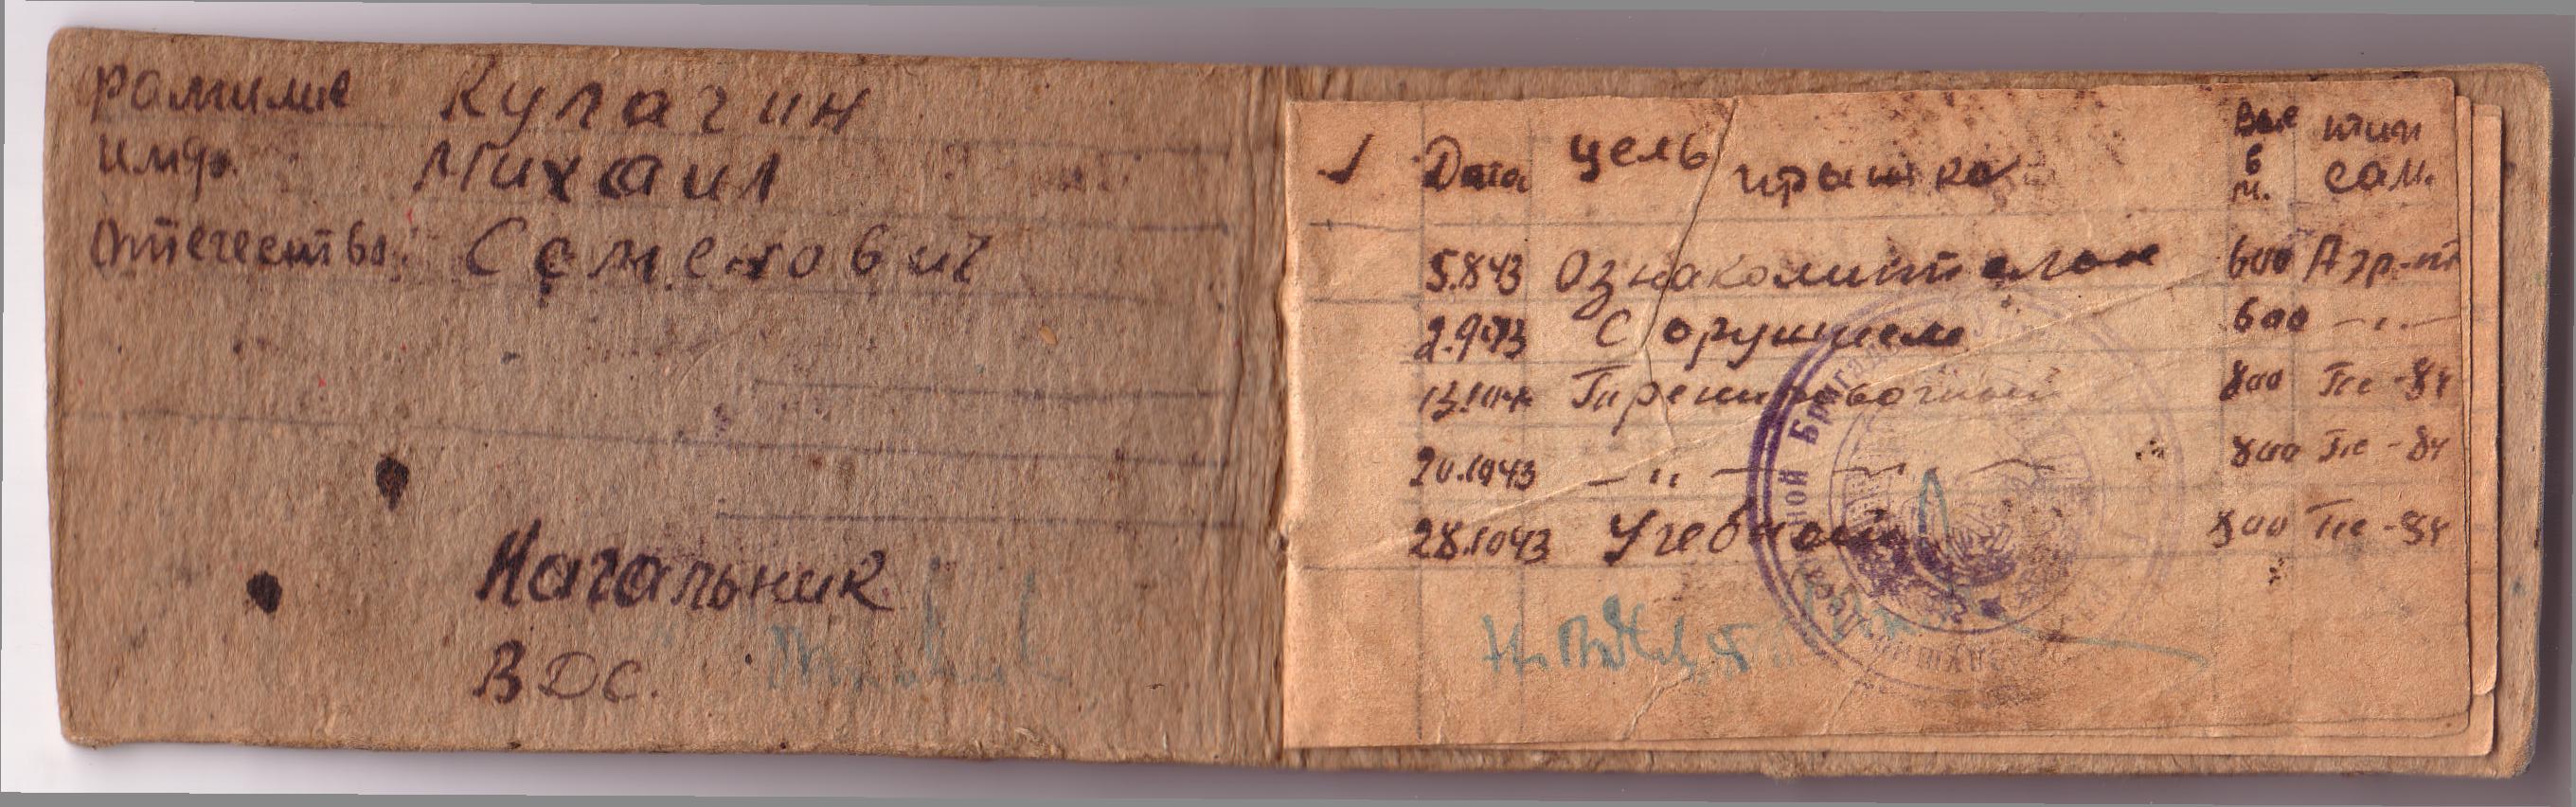 Фамилие Кулагин
имя. Михаил
Отечество: Семенович
Начальник
ВДС.
Дата цель прышка Выс в м. тип сам.
5.8.43 Ознакомительн 600 Аэр-ат
2.9.43 С оружием 600 —"—
13.10.43 Тиренировочный 800 Тс-84
20.10.43 — " — — " — 800 Тс-84
28.10.43 Учебный 800 Тс-84
ной Бригады